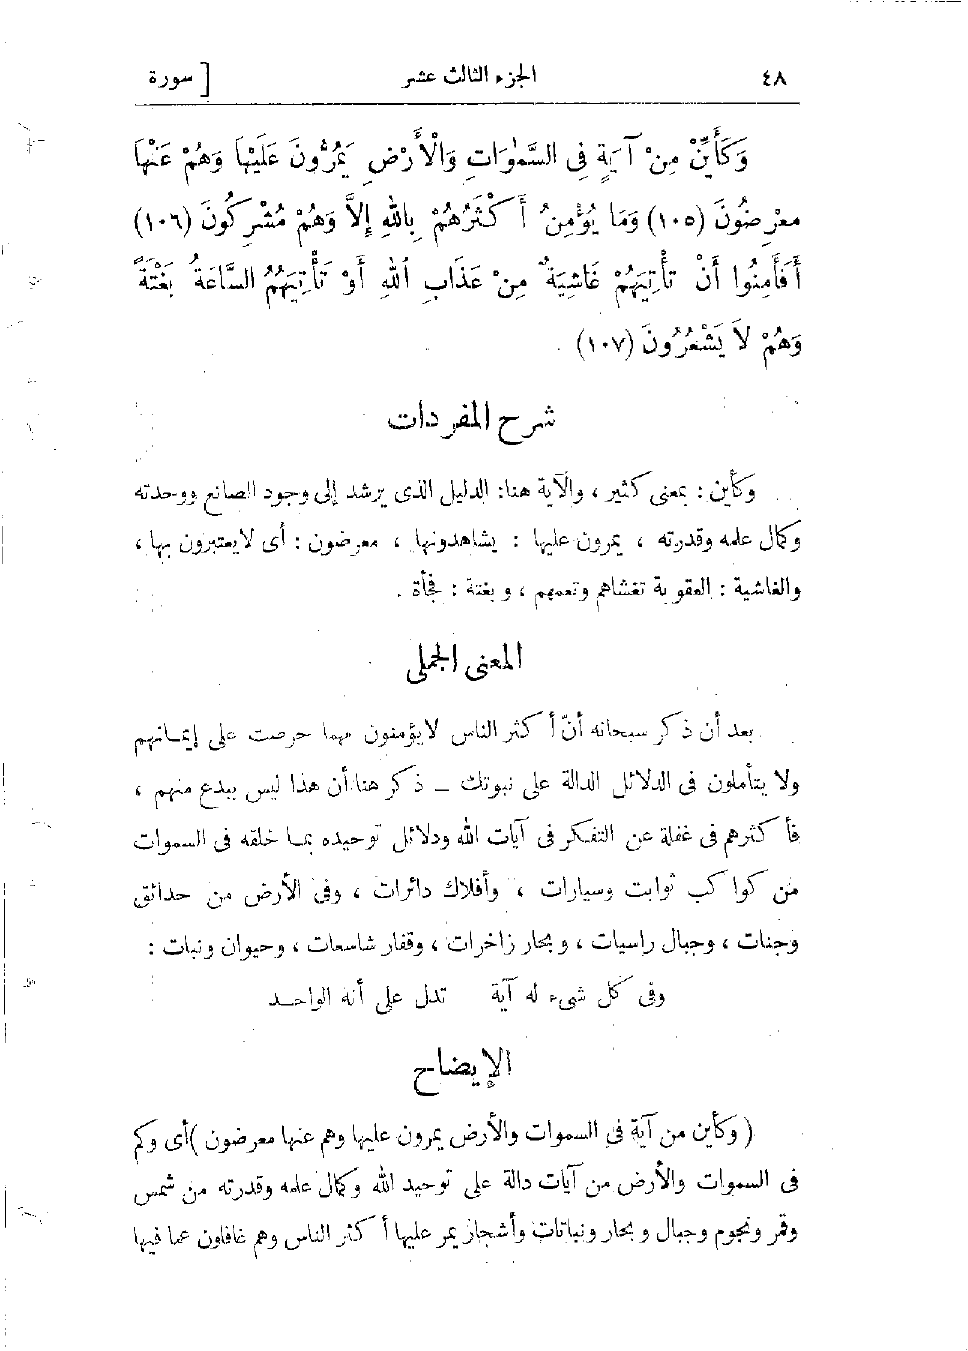 ٤٨ الجزء الثالث عشر [ سورة
وَكَأَيِّنْ مِنْ آيَةٍ فِى السَّمٰوَاتِ وَالْأَرْضِ يَمُرُّونَ عَلَيْهَا وَهُمْ عَنْهَا
مُعْرِضُونَ (١٠٥) وَمَا يُؤْمِنُ أَكْثَرُهُمْ بِاللهِ إِلاَّ وَهُمْ مُشْرِكُونَ (١٠٦)
أَفَأَمِنُوا أَنْ تَأْتِيَهُمْ غَاشِيَةٌ مِنْ عَذَابِ اللهِ أَوْ تَأْتِيَهُمُ السَّاعَةُ بَغْتَةً
وَهُمْ لاَ يَشْعُرُونَ (١٠٧)
شرح المفردات
وكأين : بمعنى كثير ، والآية هنا: الدليل الذى يرشد إلى وجود الصانع ووحدته
وكمال علمه وقدرته ، يمرون عليها : يشاهدونها ، معرضون : أى لايعتبرون بها ،
والغاشية : العقوبة تغشاهم وتعمهم ، و بغتة : فجأة .
المعنى الجملى
بعد أن ذكر سبحانه أنّ أكثر الناس لايؤمنون مهما حرصت على إيمانهم
ولا يتأملون فى الدلائل الدالة على نبوتك – ذكر هنا أن هذا ليس ببدع منهم ،
فأكثرهم فى غفلة عن التفكر فى آيات الله ودلائل توحيده بما خلقه فى السموات
من كواكب ثوابت وسيارات ، وأفلاك دائرات ، وفى الأرض من حدائق
وجنات ، وجبال راسيات ، و بحار زاخرات ، وقفار شاسعات ، وحيوان ونبات :
وفى كل شىء له آية تدل على أنه الواحد
الإيضاح
( وكأين من آية فى السموات والأرض يمرون عليها وهم عنها معرضون ) أى وكم
فى السموات والأرض من آيات دالة على توحيد الله وكمال علمه وقدرته من شمس
وقمر ونجوم وجبال و بحار ونباتات وأشجار يمر عليها أكثر الناس وهم غافلون عما فيها